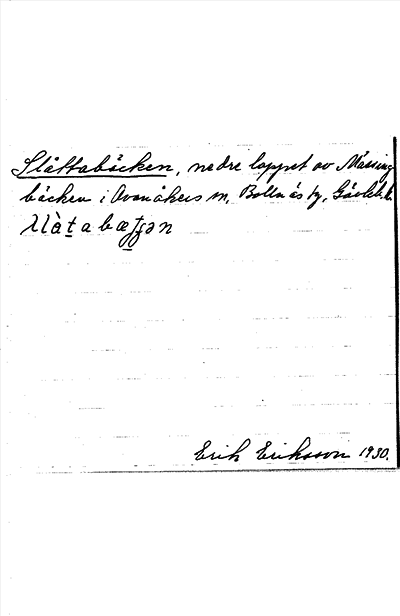 Slåttabäcken, nedre loppet av Mässing
bäcken i Ovanåkers sn, Bollnäs tg, Gävleb. l.
λlàt̠a bæƫʂən
Erik Eriksson 1930.